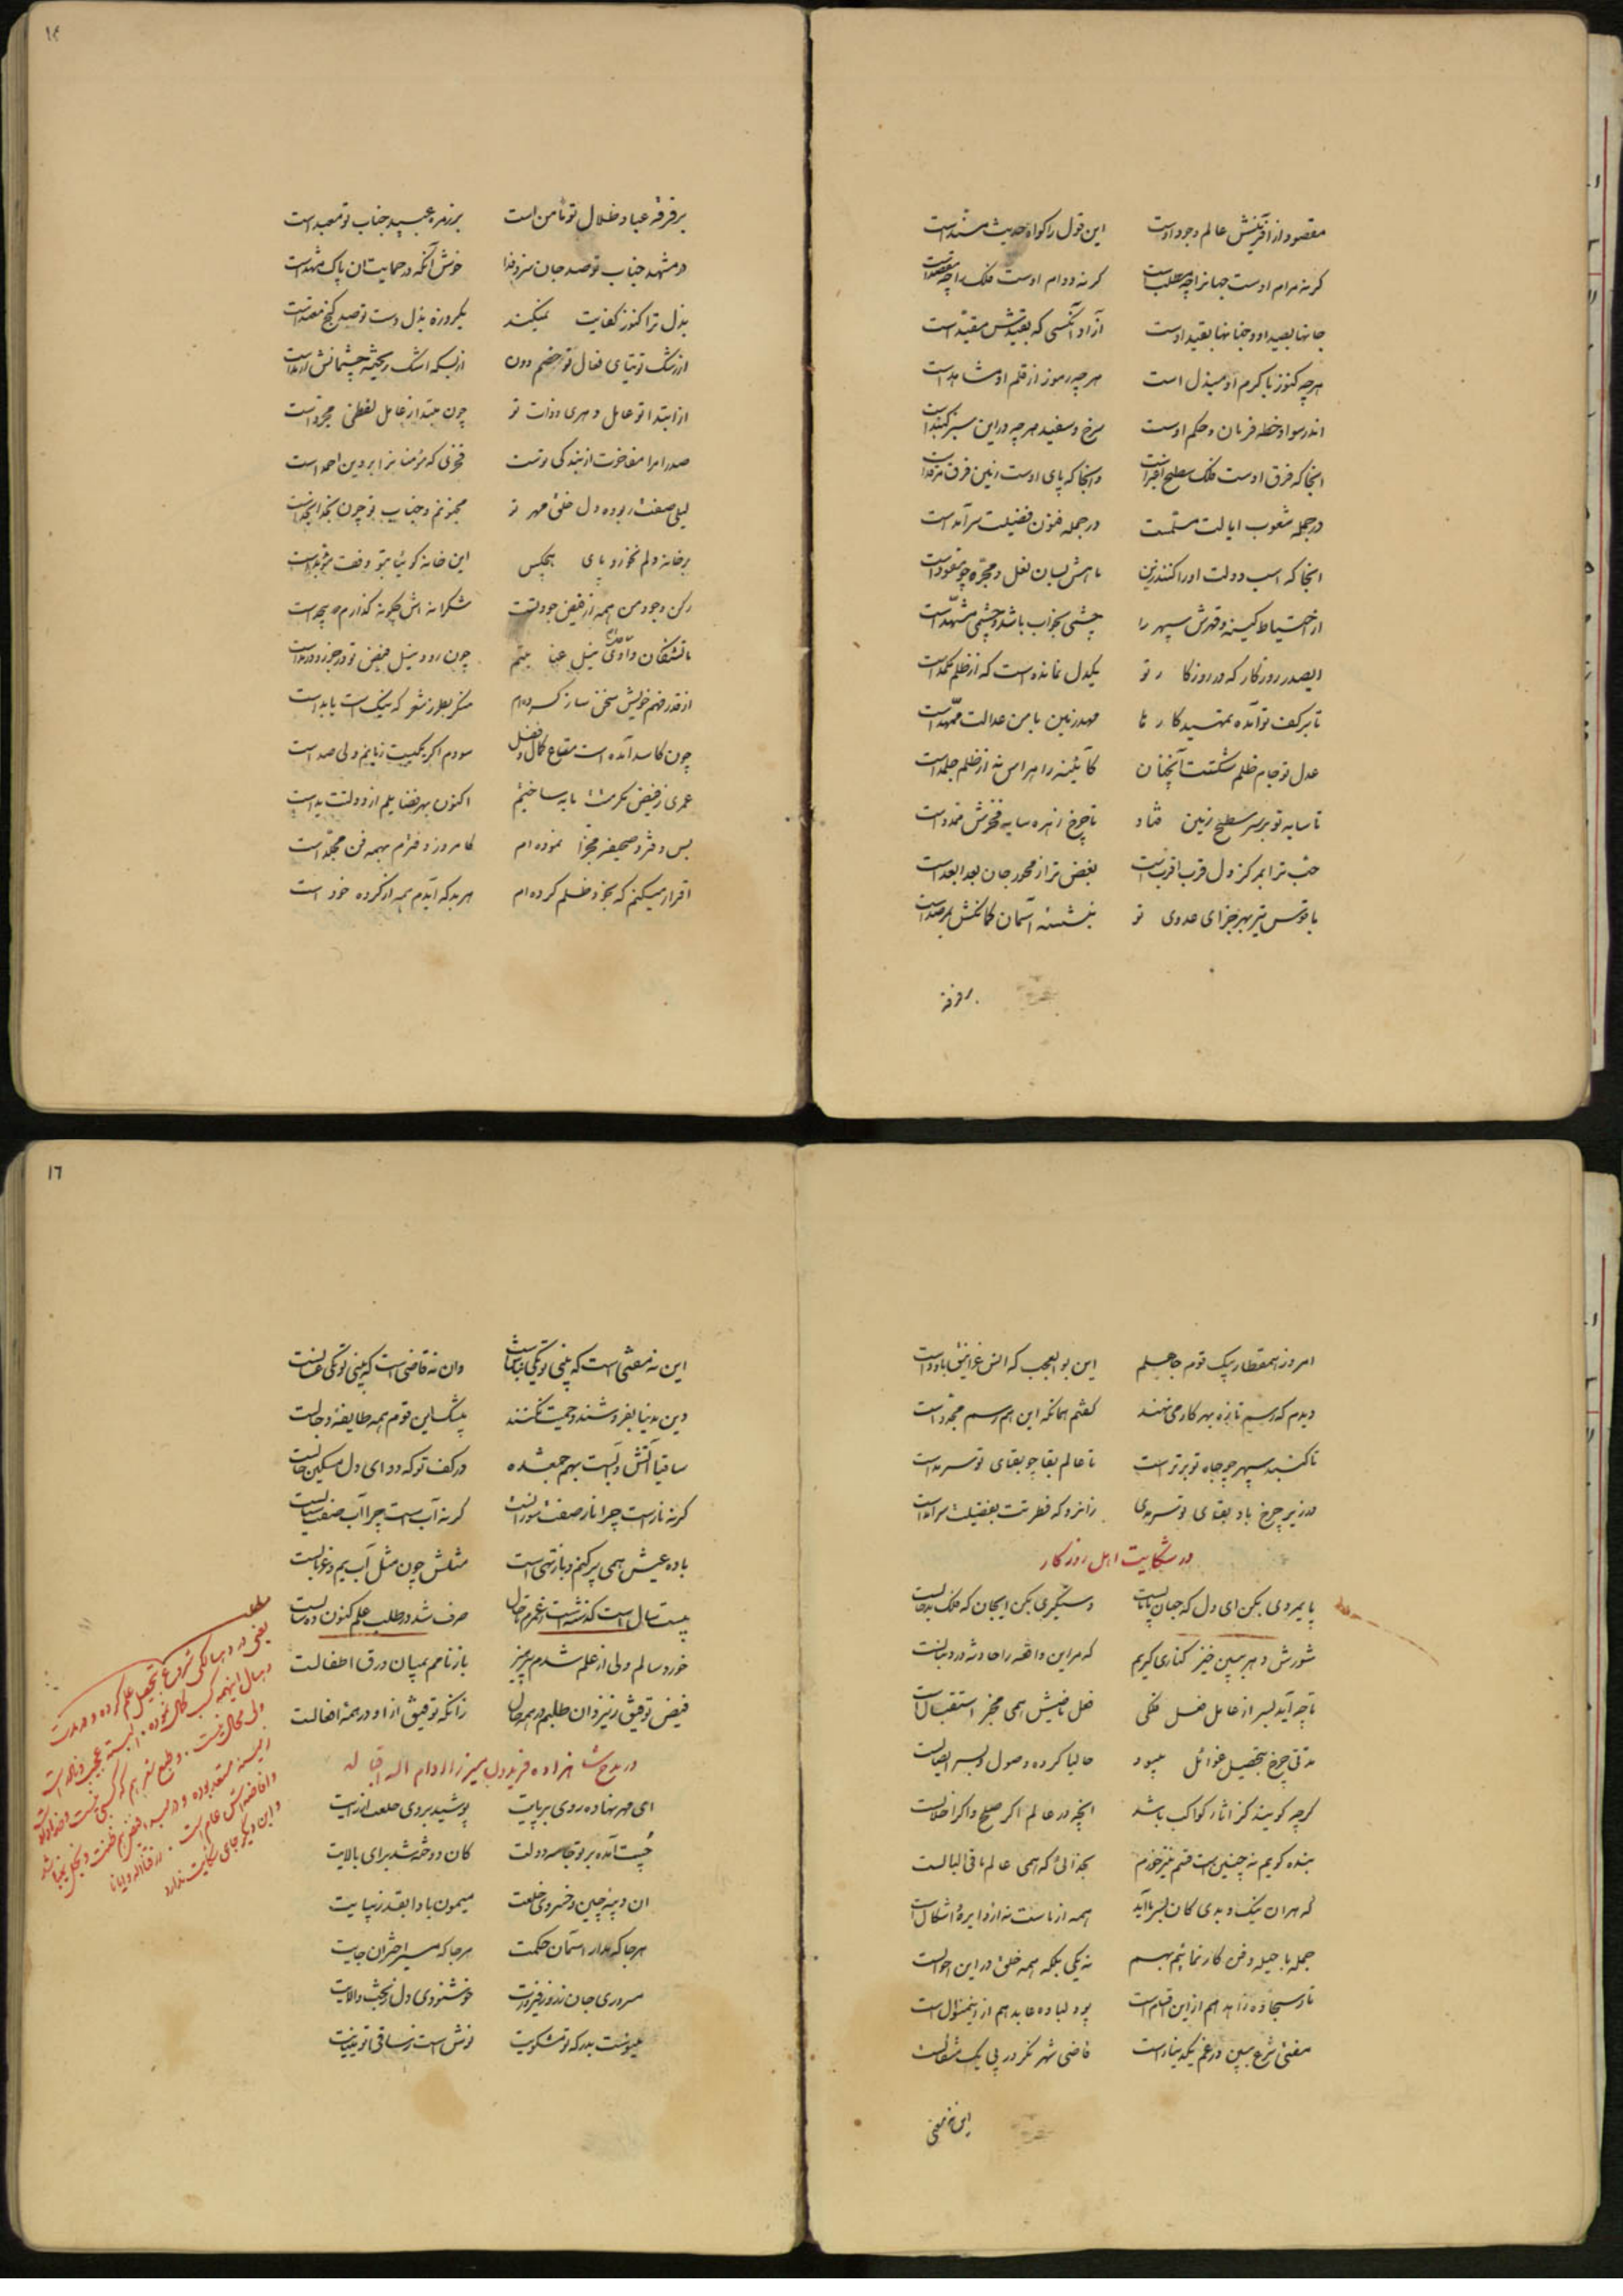 مقصود از آفرینش عالم وجود اوست این قول را گواه حدیث مسند است
گر نه مرام اوست جهانرا چه مطلب است گر نه دوام اوست فلک را چه مقصد است
جانها بصید او و جنانها بقید اوست آزاد آنکسی که بقیدش مقید است
هر چه کنوز با کرم او مبذل است هر چه رموز از قلم او مشاهد است
اندر سواد خطه فرمان و حکم اوست سرخ و سفید هر چه در این سبز گنبد است
انجا که فرق اوست فلک سطح اغبر است وانجا که پای اوست زمین فرق فرقد است
در جمله شعوب ایالت مسلمست در جمله فنون فضیلت سرآمد است
انجا که اسب دولت او را کنند زین ماهش بسان نعل و مجره چو مقود است
از احتیاط کینه و قهرش سپهر را چشمی بخواب باشد و چشمی مسهد است
ایصدر روزگار که در روزگار تو یکدل نمانده است که از ظلم مکمد است
تا بر کف تو آمده تمهید کار ما مهد زمین بامن عدالت ممهد است
عدل تو جام ظلم شکستت آنچنان کآئینه را هراس نه از ظلم جلمد است
تا سایه تو بر سر سطح زمین فتاد تا چرخ زهره سایه فخرش ممدد است
حب ترا بمرکز دل قرب اقرب است بغض ترا ز محور جان بعد ابعد است
با قوس تیر بهر جزای عدوی تو بنشسته آسمان کمانکش بمرصد است
بر فرقه
۱۴
بر فرقه عباد ظلال تو مامن است بر زمره عبید جناب تو معبد است
در مشهد جناب تو صد جان سزد فدا خوش آنکه در حمایت ان پاک مشهد است
بذل ترا کنوز کفایت نمیکند یکروزه بذل دست تو صد گنج منضد است
از رشک توتیای فعال تو خصم دون از بسکه اشک ریخته چشمانش ارمد است
از ابتدا تو عامل دهری و ذات تو چون مبتدا ز عامل لفظی مجرد است
صدرا مرا مفاخرت از بندگی تست فخری که مؤمنانرا بر دین احمد است
لیلی صفت ربوده دل خلق مهر تو مجنونم و جناب تو چون نجد انجد است
بر خانه دلم نخورد پای هیچکس این خانه گوئیا بتو وقف مؤبد است
رکن وجود من همه از فیض جود تست شکرانه اش چگونه گذارم که بیحد است
ما تشنگان وادی نیل عنایتیم چون رود نیل فیض تو در جزر و در مد است
از قدر فهم خویش سخن ساز کرده ام منگر بطرز شعر که نیک است یا بد است
چون کاسد آمده است متاع کمال و فضل سودم اگر یکیست زیانم ولی صد است
عمری ز فیض مکرمتت مایه ساختیم اکنون بهر فضایلم از دولتت ید است
بس دفتر و صحیفه مجزا نموده ام کامروز دفترم بهمه فن مجلد است
اقرار میکنم که بخود ظلم کرده ام هر بد که آیدم همه از کرده خود است
امروز همقطار یک قوم جاهلم این بو العجب که انس غرانیق با دد است
دیدم که رسم تازه بهر کار می نهند گفتم همانکه این هم رسم مجدد است
تا گنبد سپهر چو جاه تو برتر است تا عالم بقا چو بقای تو سرمد است
در زیر چرخ باد بقای تو سرمدی زانرو که فطرتت بفضیلت سرآمد است
در شکایت اهل روزگار
پایمردی بکن ای دل که جهان پامالست دستگیری بکن ایجان که فلک بدحالست
شورش دهر ببین خیز کناری گیریم که مر این واقعه را حادثه در دنبالست
تا چه آید بسر از عامل فعل فلکی فعل ماضیش همی مخبر استقبال است
مدتی چرخ بتحصیل غوائل میبود حالیا کرده وصول و بسر ایصالست
گرچه گویند کز اثار کواکب باشد انچه در عالم اگر صلح و اگر اخلالست
بنده گویم نه چنین است قسم نیز خورم بخدائی که همی عالم ما فی البالست
که هر ان نیک و بدی کان بسر ما آید همه از ماست نه از دایره اشکال است
جمله با حیله و فن کار نمائیم بهم نه یکی بلکه همه خلق در این احوالست
تار سجاده زاهد هم از این اقسام است پود لباده عابد هم از اینمنوال است
مفتی شرع مبین در غم یکدینار است قاضی شهر نگر در پی یک مثقالست
این نه مفتی
۱۶
این نه مفتی است که بینی تو یکی نباش است وان نه قاضی است که بینی تو یکی غسالست
دین بدنیا بفروشند و حمیت نکنند بیشک این قوم همه طایفه دجالست
ساقیا آتش و آبست بهم جمع شده در کف تو که دوای دل مسکین حالست
گر نه نارست چرا نار صفت سوزانست گر نه آب است چرا آب صفت سیالست
باده عیش همی پر کنم و باز تهی است مثلش چون مثل آب یم و غربالست
بیست سال است گذشته است ز عمرم تا حال صرف شد در طلب علم کنون ده سالست
خورد سالم ولی از علم شدم پیر پیر باز نامم بمیان ورق اطفالست
فیض توفیق ز یزدان طلبم در همه حال زانکه توفیق از او در همه افعالست
در مدح شاهزاده فریدون میرزا ادام الله اقباله
ای مهر نهاده روی بر پایت پوشید بروی خلعت ارایت
چست آمده بر تو جامه دولت کان دوخته شد برای بالایت
ان دیبه چین و خسروی خلعت میمون بادا بقد زیبایت
هر جا که مدار اسمان حکمت هر جا که مسیر اختران جایت
سروری جان نوروز فیروزت خوشنودی دل ز بخت والایت
یعنی در ده سالگی شروع بتحصیل علم کرده و در مدت
ده سال اینهمه کسب کمال نموده. البته عجیب
ولی محال نیست. و طبع شعر هم که کسبی نیست